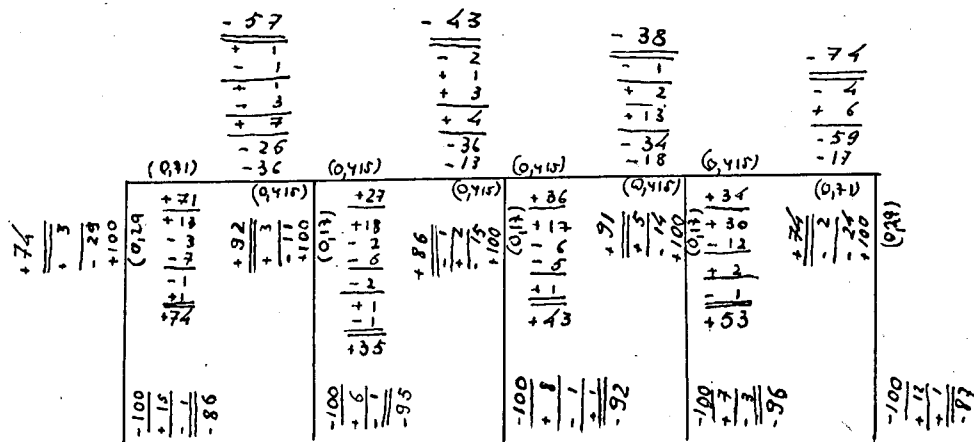 - 57
+ 1
- 1
+ 1
- 3
+ 7
- 26
- 36
- 43
- 2
+ 1
+ 3
+ 4
- 36
- 13
- 38
- 1
+ 2
+ 13
- 34
- 18
- 74
- 4
+ 6
- 59
- 17
(0,71)
(0,415)
(0,415)
(0,415)
(0,415)
(0,415)
(0,415)
(0,71)
+74
+ 3
- 29
+100
(0,29)
+71
+13
- 3
- 7
- 1
+1
+74
+92
- 3
- 11
+100
(0,17)
+27
+18
- 2
- 6
- 2
+1
- 1
+35
+86
- 1
+ 2
- 15
+100
(0,17)
+36
+17
- 6
- 5
+1
+43
+91
- 5
- 14
+100
(0,17)
+34
+30
- 12
+ 2
- 1
+53
- 2
- 24
+100
(0,29)
-100
+ 15
- 1
- 86
-100
+ 6
- 1
- 95
-100
+ 8
- 1
+ 1
- 92
-100
+ 7
- 3
- 96
-100
+ 12
+ 1
- 87